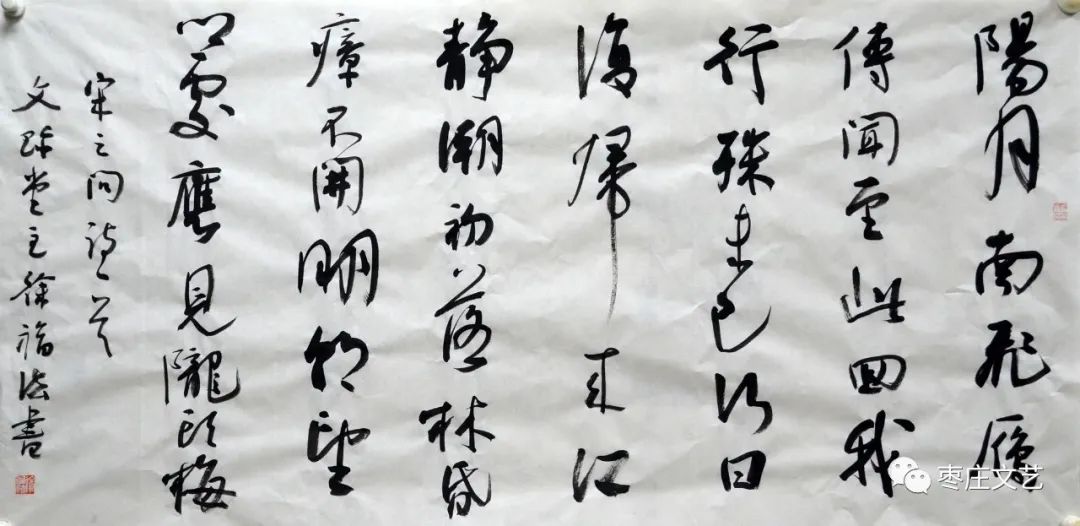 陽月南飛雁
傳聞至此回我
行殊未已何日
復帰来江
静潮初落林昏
瘴不開明朝望
鄉處應見隴頭梅
宋之问詩一首
文堂主徐福法書
枣庄文艺